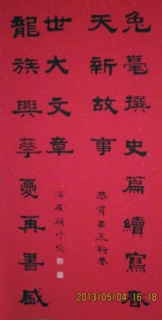 兔毫撰史篇續寫春
天新故事
恭賀壬辰新春
龍族興華夏再書盛
世大文章
2013/05/04 16:18